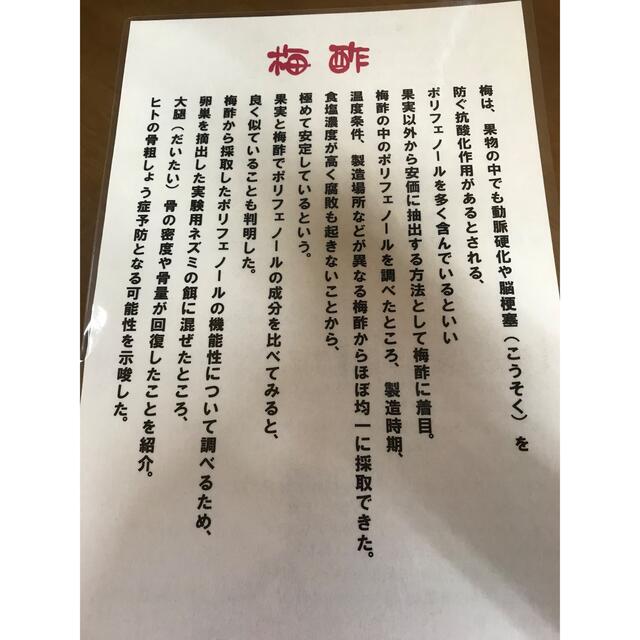 梅酢
梅は、果物の中でも動脈硬化や脳梗塞（こうそく）を
防ぐ抗酸化作用があるとされる、
ポリフェノールを多く含んでいるといい
果実以外から安価に抽出する方法として梅酢に着目。
梅酢の中のポリフェノールを調べたところ、製造時期、
温度条件、製造場所などが異なる梅酢からほぼ均一に採取できた。
食塩濃度が高く腐敗も起きないことから、
極めて安定しているという。
果実と梅酢でポリフェノールの成分を比べてみると、
良く似ていることも判明した。
梅酢から採取したポリフェノールの機能性について調べるため、
卵巣を摘出した実験用ネズミの餌に混ぜたところ、
大腿（だいたい）骨の密度や骨量が回復したことを紹介。
ヒトの骨粗しょう症予防となる可能性を示唆した。